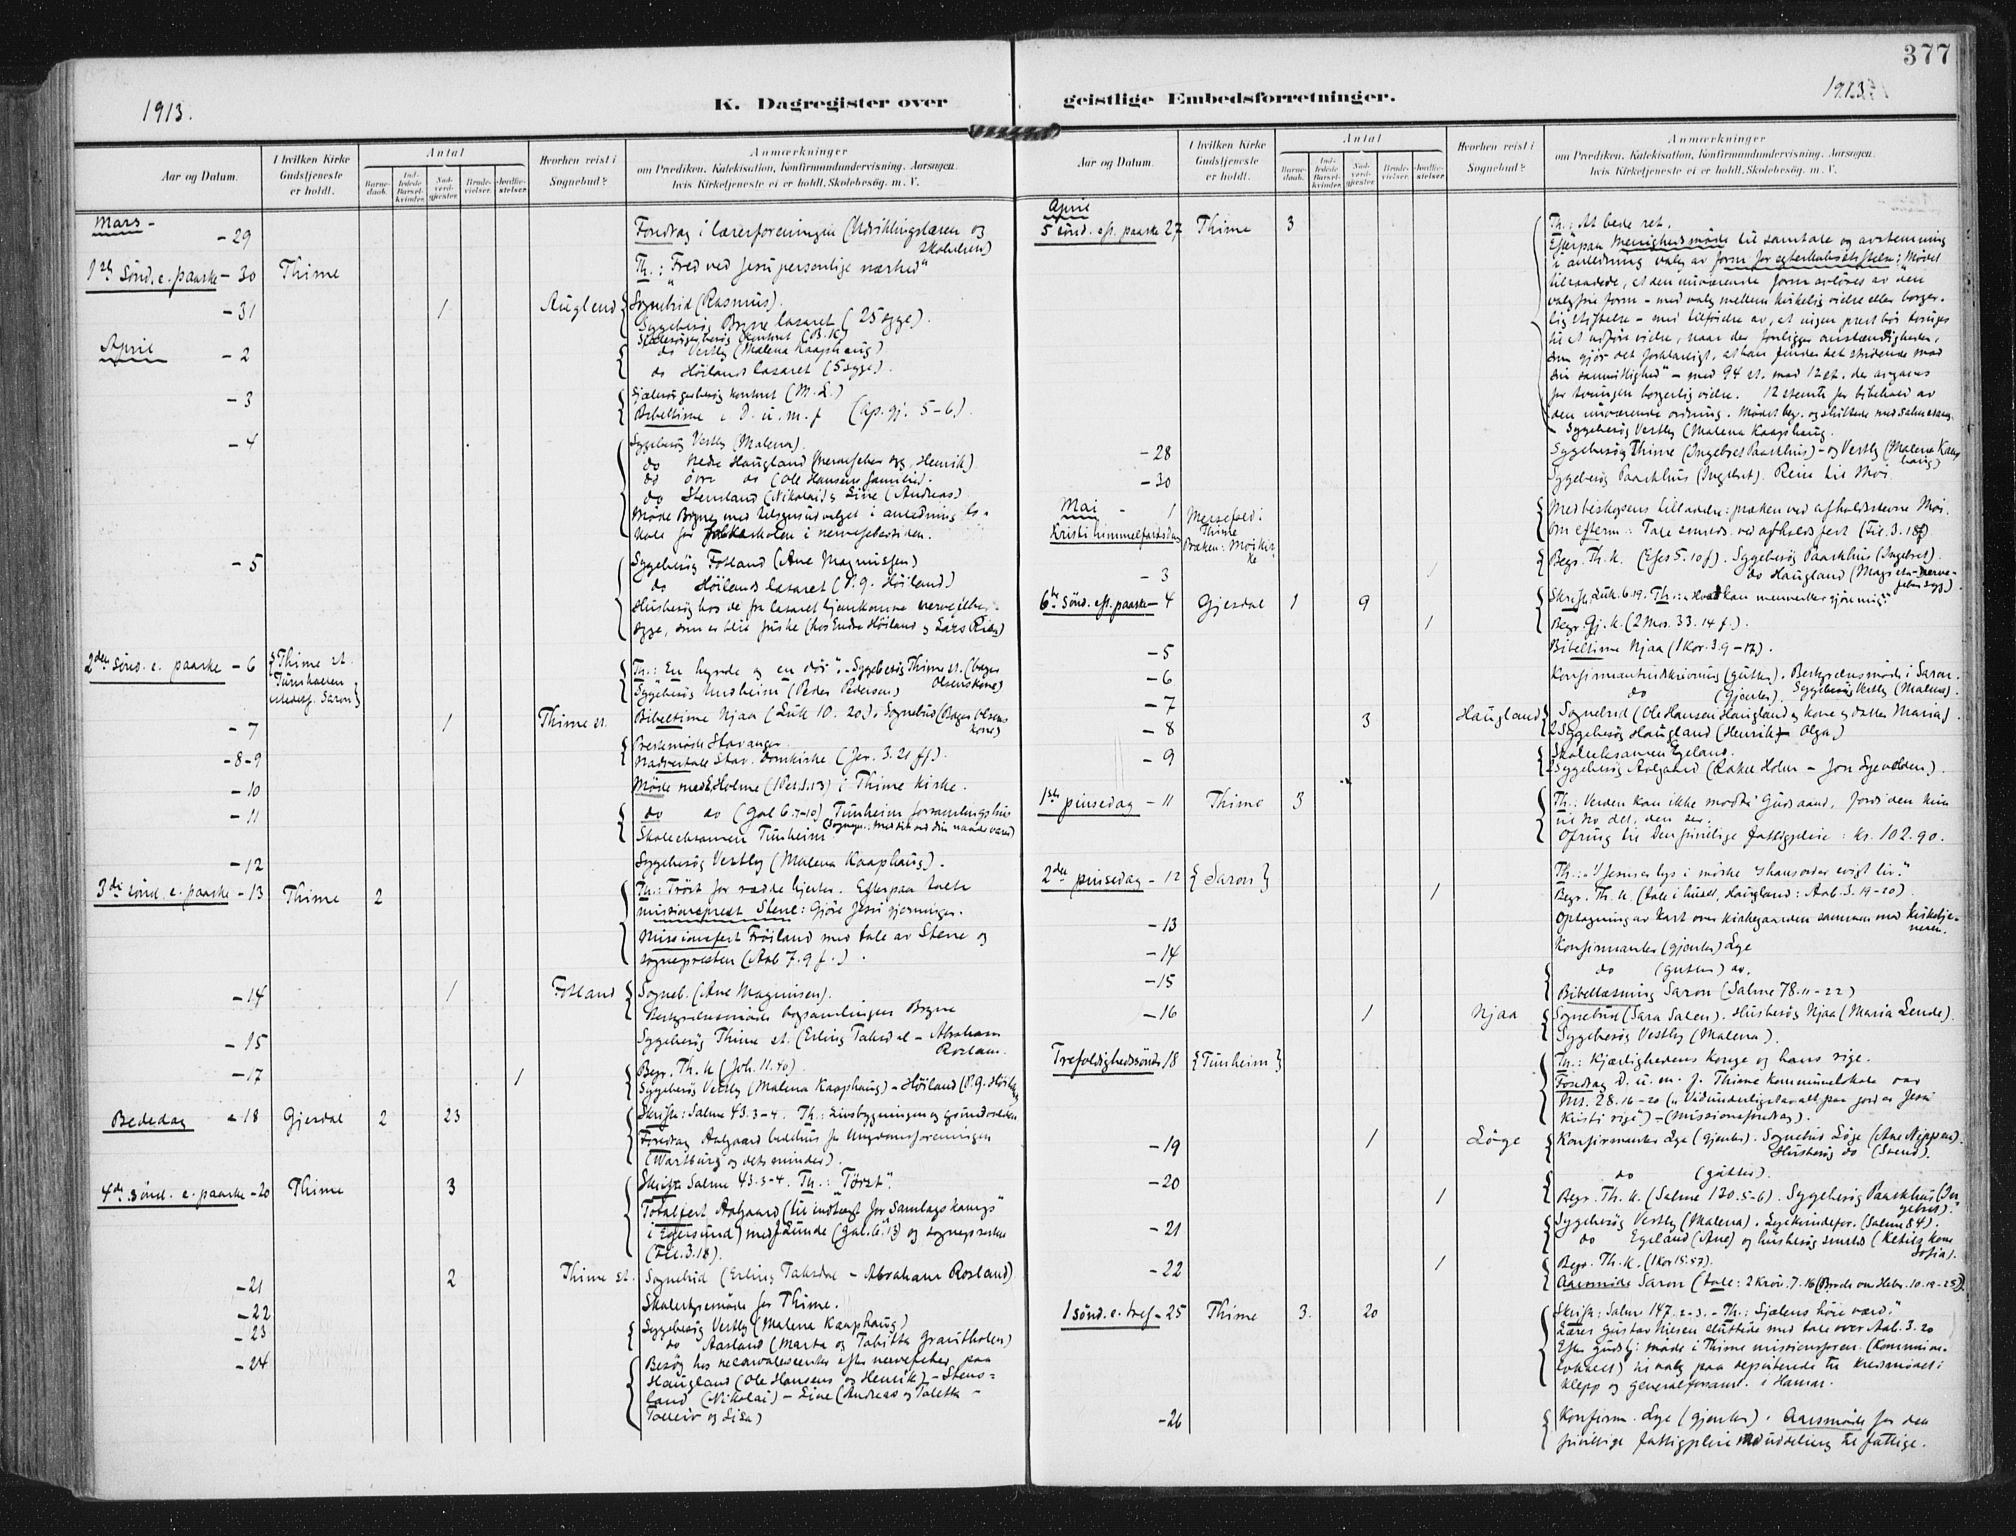 377
1913.
K. Dagregister over
geistlige Embedsforretninger.
1913
Aar og Datum.
I hvilken Kirke
Gudstjeneste
er holdt.
Antal
Barne-
daab.
Ind-
ledede
Barsel-
kvinder.
Nad-
verd-
gjester.
Brude-
vielser.
Jordfæ-
stelser.
Hvorhen reist i
Sognebud?
Anmærkninger
om Prædiken, Katekisation, Konfirmandundervisning, Aarsagen,
hvis Kirketjeneste ei er holdt, Skolebesøg, m. V.
Mars -
- 29
Foredrag i lærerforeningen (Udviklingslæren og
skolelæren)
1ste Sønd. e. paaske - 30 Thime
Th.: "Fred ved Jesu personlige nærhed"
- 31 1 Auglend
Sognebud (Rasmus).
Sygebesøg Bryne lasaret (25 syge).
April
- 2
do Vestly (Malena Kaaphaug)
do Höilands lasaret (5 syge).
- 3
Sjælesørgerbesøg kontoret (M. L.)
Bibeltime i D. u. m. f (Ap. gj. 5-6).
- 4
Sygebesøg Vestly (Malena).
do Nedre Haugland (nervefeber syg, Henrik)
do övre do (Ole Hansens familie).
do Stensland (Nikolai) & Line (Andreas)
Møde Bryne med tilsynsudvalget i anledning
hold for folkeskolen i nervefebertiden.
- 5
Sygebesøg Fotland (Ane Magnussen)
do Höilands lasaret (P. G. Höiland)
Husbesøg hos de fra lasaret hjemkomne nervefeber-
syge, som er blit friske (hos Endre Höiland og Lars Rise)
2den Sønd. e. paaske - 6 Thime st.
Tunheim
Saron
Th.: En hyrde og en dör". Sygebesøg Thime st. (bager
Olsens kone)
Sygebesøg Undheim (Peder Pedersen)
- 7 1 Thime st.
Bibeltime Njaa (Luk 10. 20). Sognebud (Bager Olsens
kone)
- 8-9
Prestemøde Stavanger.
Nadvertale Stav. domkirke (Jer. 3. 21 ff).
- 10
Møde med E. Holme (1 Pet. 1.13) i Thime kirke.
- 11
do do (Gal 6. 7-10) Tunheim forsamlingshus
Skoleeksamen Tunheim
- 12
Sygebesøg Vestly (Malena Kaaphaug).
3die sønd. e. paaske - 13 Thime 2
Th.: Tröst for rædde hjerter. Efterpaa talte
missionsprest Stene: Gjöre Jesu gjerninger.
Missionsfest Fröiland med tale av Stene og
sognepresten (Aab 7. 9 f.).
- 14 1 Fotland
Sogneb. (Ane Magnusen).
Bestyrelsesmøde bogsamlingen Bryne
- 15
Sygebesøg Thime st. (Erling Taksdal - Abraham
Rosland.
- 17 1
Begr. Th. k (Joh. 11. 40)
Sygebesøg Vestly (Malena Kaaphaug) - Höiland (P. G. Höiland)
Bededag - 18 Gjesdal 2 23
Skrift: Salme 43. 3-4. Th.: Livsbygningen og grundvolden
Foredrag Aalgaard bedehus for Ungdomsforeningen
(Wartburg og dets minder).
4de sønd. e. paaske - 20 Thime 3
Skrift: Salme 43. 3-4. Th.: "Törst".
Totalfest Aalgaard (til indtægt for Samlagskamp
i Egersund) med Lunde (Gal. 6. 13) og sognepresten
(Fil. 3. 18).
- 21 2 Thime st.
Sognebud (Erling Taksdal - Abraham Rosland)
- 22
Skolestyremøde for Thime.
- 23
Sygebesøg Vestly (Malena Kaaphaug)
do Aasland (Marta og Tabitta Grautholen)
- 24
Besøg hos reconvalescenter efter nervefeber paa
Haugland (Ole Hansens og Henrik) - Stens-
land (Nikolai) - Line (Andreas og Taletta -
Tolleiv og Lisa)
Aar og Datum.
I hvilken Kirke
Gudstjeneste
er holdt.
Antal
Barne-
daab.
Ind-
ledede
Barsel-
kvinder.
Nad-
verd-
gjester.
Brude-
vielser.
Jordfæ-
stelser.
Hvorhen reist i
Sognebud?
Anmærkninger
om Prædiken, Katekisation, Konfirmandundervisning, Aarsagen,
hvis Kirketjeneste ei er holdt, Skolebesøg, m. V.
April
5 sönd. eft. paaske 27 Thime 3
Th.: At bede ret.
Efterpaa Menighedsmøde til samtale og avstemning
i anledning valg av form for egteskabsstiftelse: "Mødet
tilraadede, at den nuværende form avlöses av den
valgfrie form - med valg mellem kirkelig vielse eller borger-
lig stiftelse - med tilföielse av, at ingen prest bör tvinges
til at utföre vielse, naar der foreligger omstændigheder,
som gjör det forklarligt, at han finder det stridende mod
sin samvittighed" - med 94 st. mod 12 st. der avgaves
for tvungen borgerlig vielse. 12 stemte for bibehold av
den nuværende ordning. Mødet beg. og sluttede med salmesang.
Sygebesøg Vestly (Malena Kaaphaug.
- 28
Sygebesøg Thime (Ingebret Paaskhus) - og Vestly (Malena Kaap-
haug)
- 30
Sygebesøg Paaskhus (Ingebret). Reise til Moi.
Mai - 1
Kristi himmelfartsdag
Messefald i
Thime
Præken: Moi kir-
ke
Med biskopens tilladelse: præken ved afholdsstevne Moi.
Om efterm.: Tale ved afholdsfest (Fil. 3. 18 f)
- 3 1
Begr. Th. k. (Efes 5. 10 f). Sygebesøg Paaskhus (Ingebret).
do Haugland (nerve-
febersyg).
6te sönd. eft. paaske - 4 Gjesdal 1 9 1
Skrift: Luk. 6. 19. Th.: "Hvad kan mennesker gjöre mig".
Begr. Gj. k. (2 Mos. 33. 14 f.).
- 5
Bibeltime Njaa (1 Kor. 3. 9-17).
- 6
Konfirmantindskrivning (gutter). Bestyrelsesmøde i Saron.
- 7
do (gjenter). Sygebesøg Vestly (Malena).
- 8 3 Haugland
Sognebud (Ole Hansen Haugland og kone og datter Maria).
2 Sygebesøg Haugland (Henrik - Olga)
- 9
Skoleeksamen Egeland.
Sygebesøg Aalgaard (Rakel Holen - Jon Lyevolden).
1ste pinsedag - 11 Thime 3
Th.: Verden kan ikke modta Guds aand, fordi den kun
vil tro det, den ser.
Ofring til den frivilige fattigpleie: kr. 102.90.
2den pinsedag - 12 Saron 1
Th.: "I Jesus er lys i mörke & hans ord er evigt liv".
Begr. Th. k (tale i huset, Haugland: Aab. 3. 19-20).
- 13
Optagning av kart over kirkegaarden sammen med kirketje-
neren.
- 14
Konfirmanter (gjenter) Lye
- 15
do (gutter) do.
Bibellæsning Saron (Salme 78. 11-22)
- 16 1 Njaa
Sognebud (Sara Salen). Husbesøg Njaa (Maria Lende).
Sygebesøg Vestly (Malena).
Trefoldighedssönd. 18 Tunheim
Th.: Kjærlighedens konge og hans rige.
Foredrag D. u. m. f. Thime kommunelokale over
Mt. 28. 16-20 ("Vidunderligst av alt paa jord er Jesu
Kristi rige") - (missionsforedrag).
- 19 1 Löge
Konfirmanter Lye (gjenter). Sognebud Löge (Ane Nippen).
Husbesøg do (Svend).
- 20 1
do (gutter).
Begr. Th. k. (Salme 130. 5-6). Sygebesøg Paaskhus (In-
gebret).
- 21
Sygebesøg Vestly (Malena). Legekvindefor. (Salme 84).
do Egeland (Ane) og husbesøg smsteds (Ketils kone
Sofia).
- 22 1
Begr. Th. k. (1 Kor 15. 57).
Aarsmöde Saron (tale: 2 Krön. 7. 16 (Brode om Hebr. 10. 19-25)).
1 sönd. e. tref - 25 Thime 3. 20
Skrift: Salme 147. 2-3. - Th.: Sjælens höie værd."
Lærer Gustav Niesen sluttede med tale over Aab. 3. 20
Efter gudstj. møde i Thime missionsforen. (kommune-
lokalet) til valg paa deputerede til kredsmødet i
Klepp og generalforsaml. i Hamar.
- 26
Konfirm. Lye (gjenter). Aarsmøde for den
frivillige fattigpleie med uddeling til fattige.